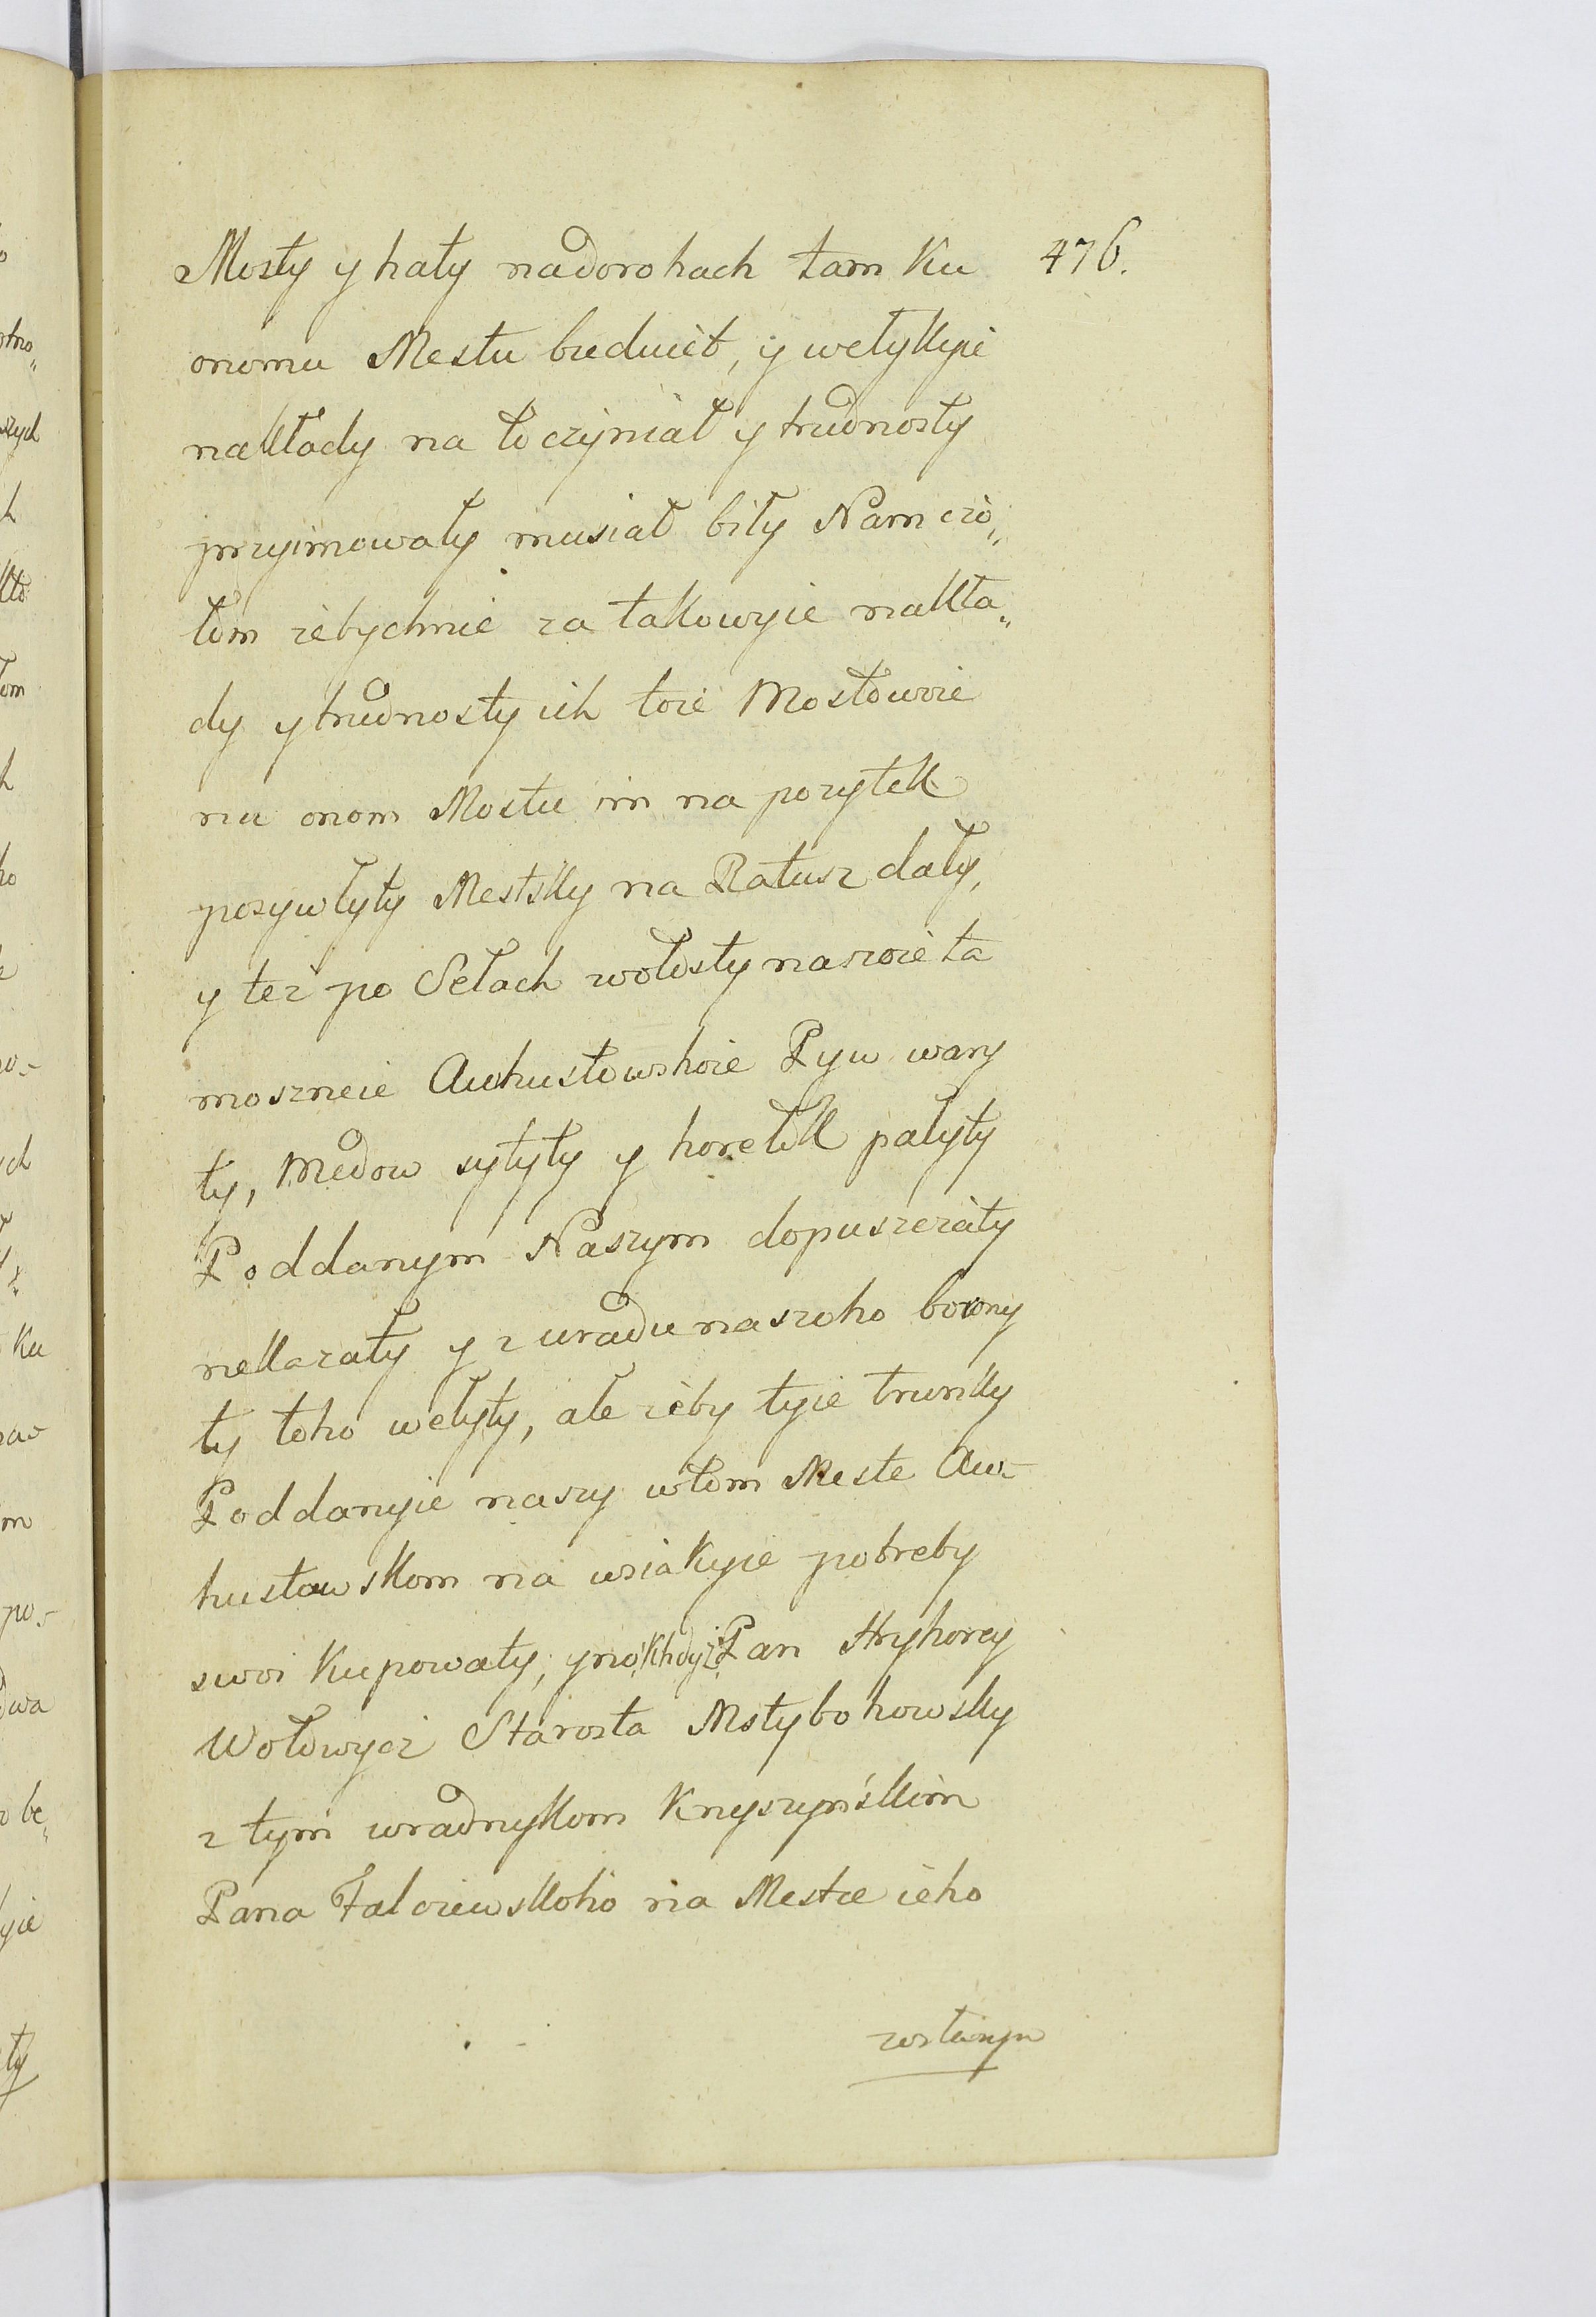 Mosty y haty nadorohach tam ku 476.
onomu Mestu buduiet, y wetykyie
nakłady na to czyniat y trudnosty
pryimowaty musiat bity Nam czo„
tom żebychmie za takowyie nakła„
dy y trudnosty ich toie Mostowoie
nu onom Mostu im na pozytek
pozywtyty Mestsky na Ratusz daty,
y też po Sełach wołosty naszoie ta
moszneie Awhustowskoie Pyw wary
ty, Medow sytyty y horełk pałyty
Poddanym Naszym dopuszczaty
nekazaty y z uradu naszoho borony
ty toho wełyty, ale żeby tyie trunky
Poddanyie naszy wtom Meste Aw-
hustowskom na wsiakyie potreby
swoi kupowaty, yno khdyż Pan Hryhorey
Wołowycz Starosta Mstybohowsky
z tym uradnykom Knyszynskim
Pana Falczewskoho na Mestce ieho
zostawyn